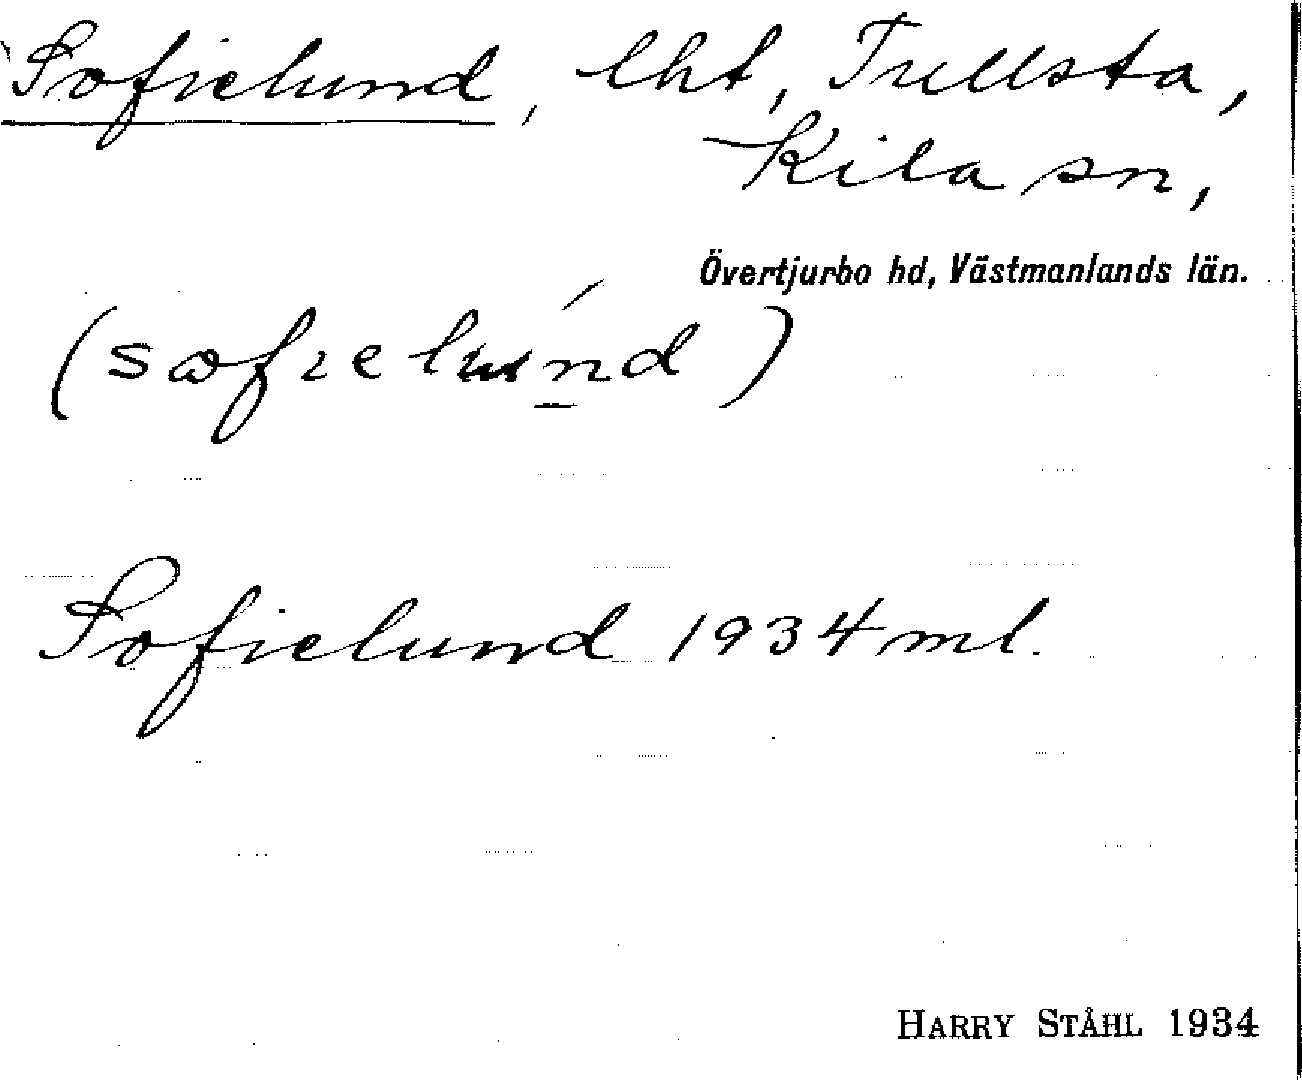 Sofielund, lht, Tullsta,
Kila sn,
Övertjurbo hd, Västmanlands län.
(sofielúnd)
Sofielund 1934 ml.
HARRY STÅHL 1934